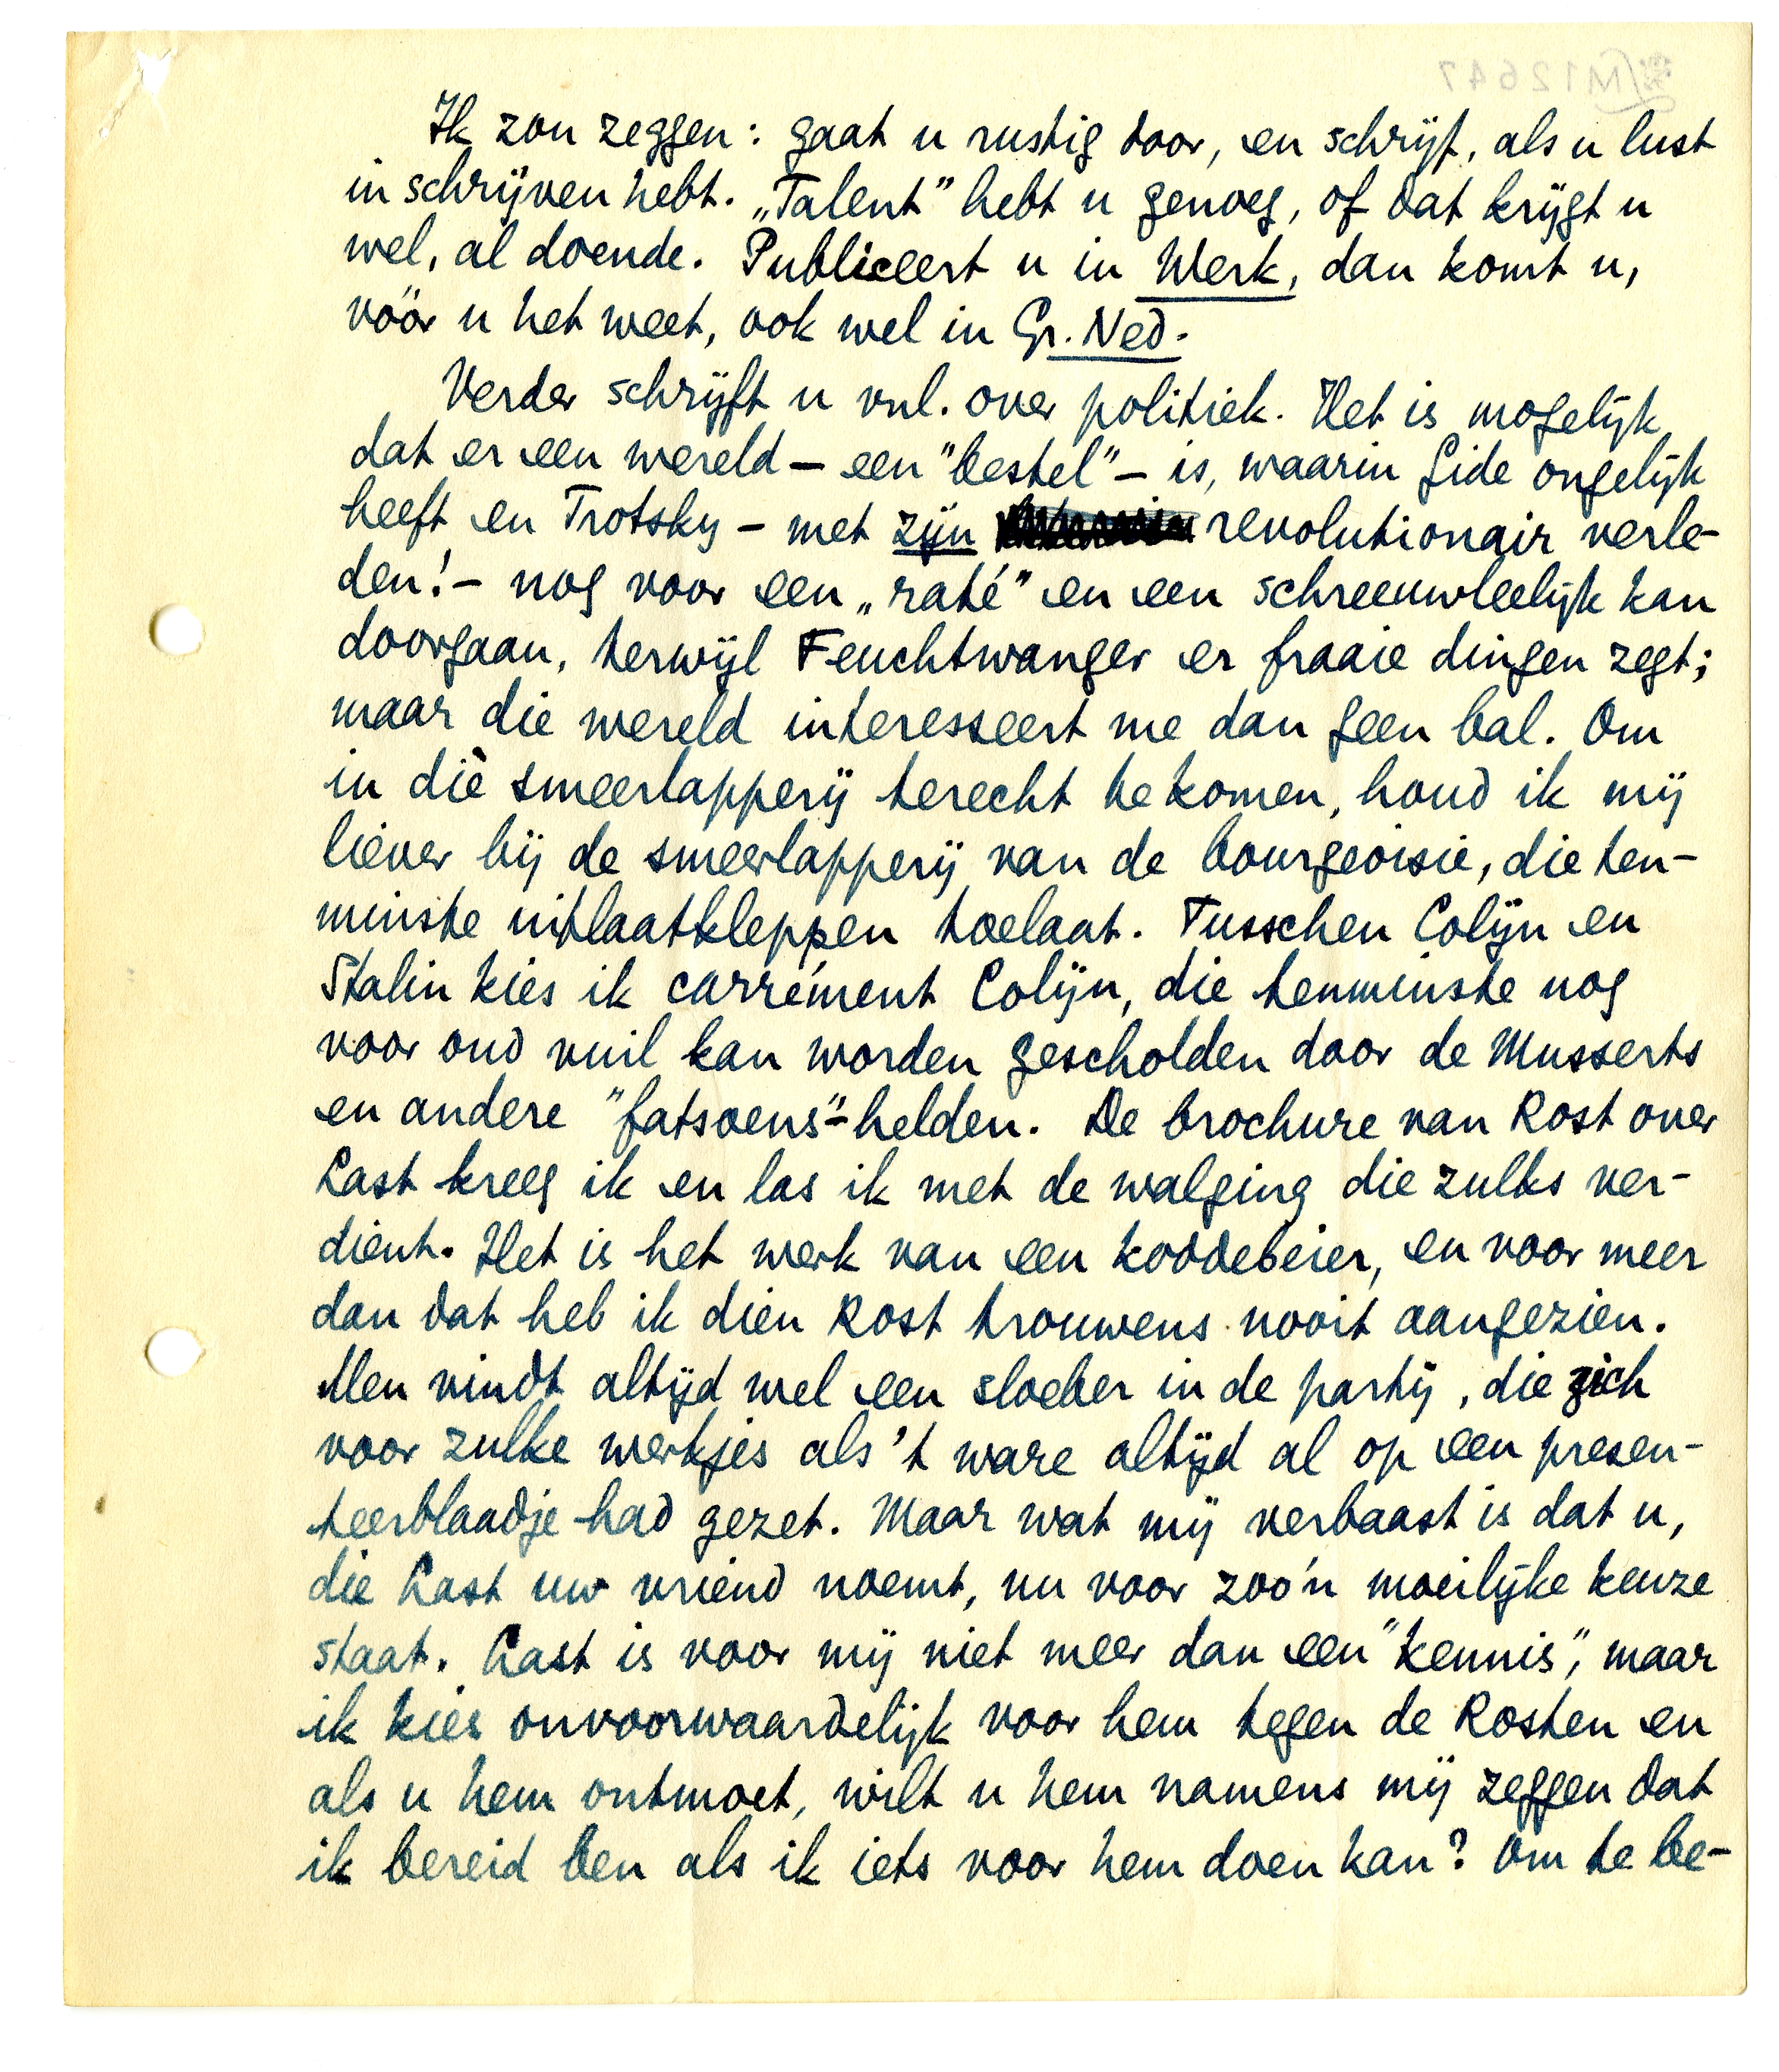 M12647
Ik zou zeggen: gaat u rustig door, en schrijf, als u lust
in schrijven hebt. „Talent” hebt u genoeg, of dat krijgt u
wel, al doende. Publiceert u in Werk, dan komt u,
vóór u het weet, ook wel in Gr. Ned.
Verder schrijft u vnl. over politiek. Het is mogelijk
dat er een wereld – een "bestel" – is, waarin Gide ongelijk
heeft en Trotsky – met zijn revolutionair verle-
den! – nog voor een „raté” en een schreeuwleelijk kan
doorgaan, terwijl Feuchtwanger er fraaie dingen zegt;
maar die wereld interesseert me dan geen bal. Om
in dìe smeerlapperij terecht te komen, houd ik mij
liever bij de smeerlapperij van de bourgeoisie, die ten-
minste uitlaatkleppen toelaat. Tusschen Colijn en
Stalin kies ik carrément Colijn, die tenminste nog
voor oud vuil kan worden gescholden door de Musserts
en andere "fatsoens"-helden. De brochure van Rost over
Last kreeg ik en las ik met de walging die zulks ver-
dient. Het is het werk van een koddebeier, en voor meer
dan dat heb ik dien Rost trouwens nooit aangezien.
Men vindt altijd wel een sloeber in de partij, die zich
voor zulke werkjes als 't ware altijd al op een presen-
teerblaadje had gezet. Maar wat mij verbaast is dat u,
die Last uw vriend noemt, nu voor zoo'n moeilijke keuze
staat. Last is voor mij niet meer dan een "kennis", maar
ik kies onvoorwaardelijk voor hem tegen de Rosten en
als u hem ontmoet, wilt u hem namens mij zeggen dat
ik bereid ben als ik iets voor hem doen kan? Om te be-